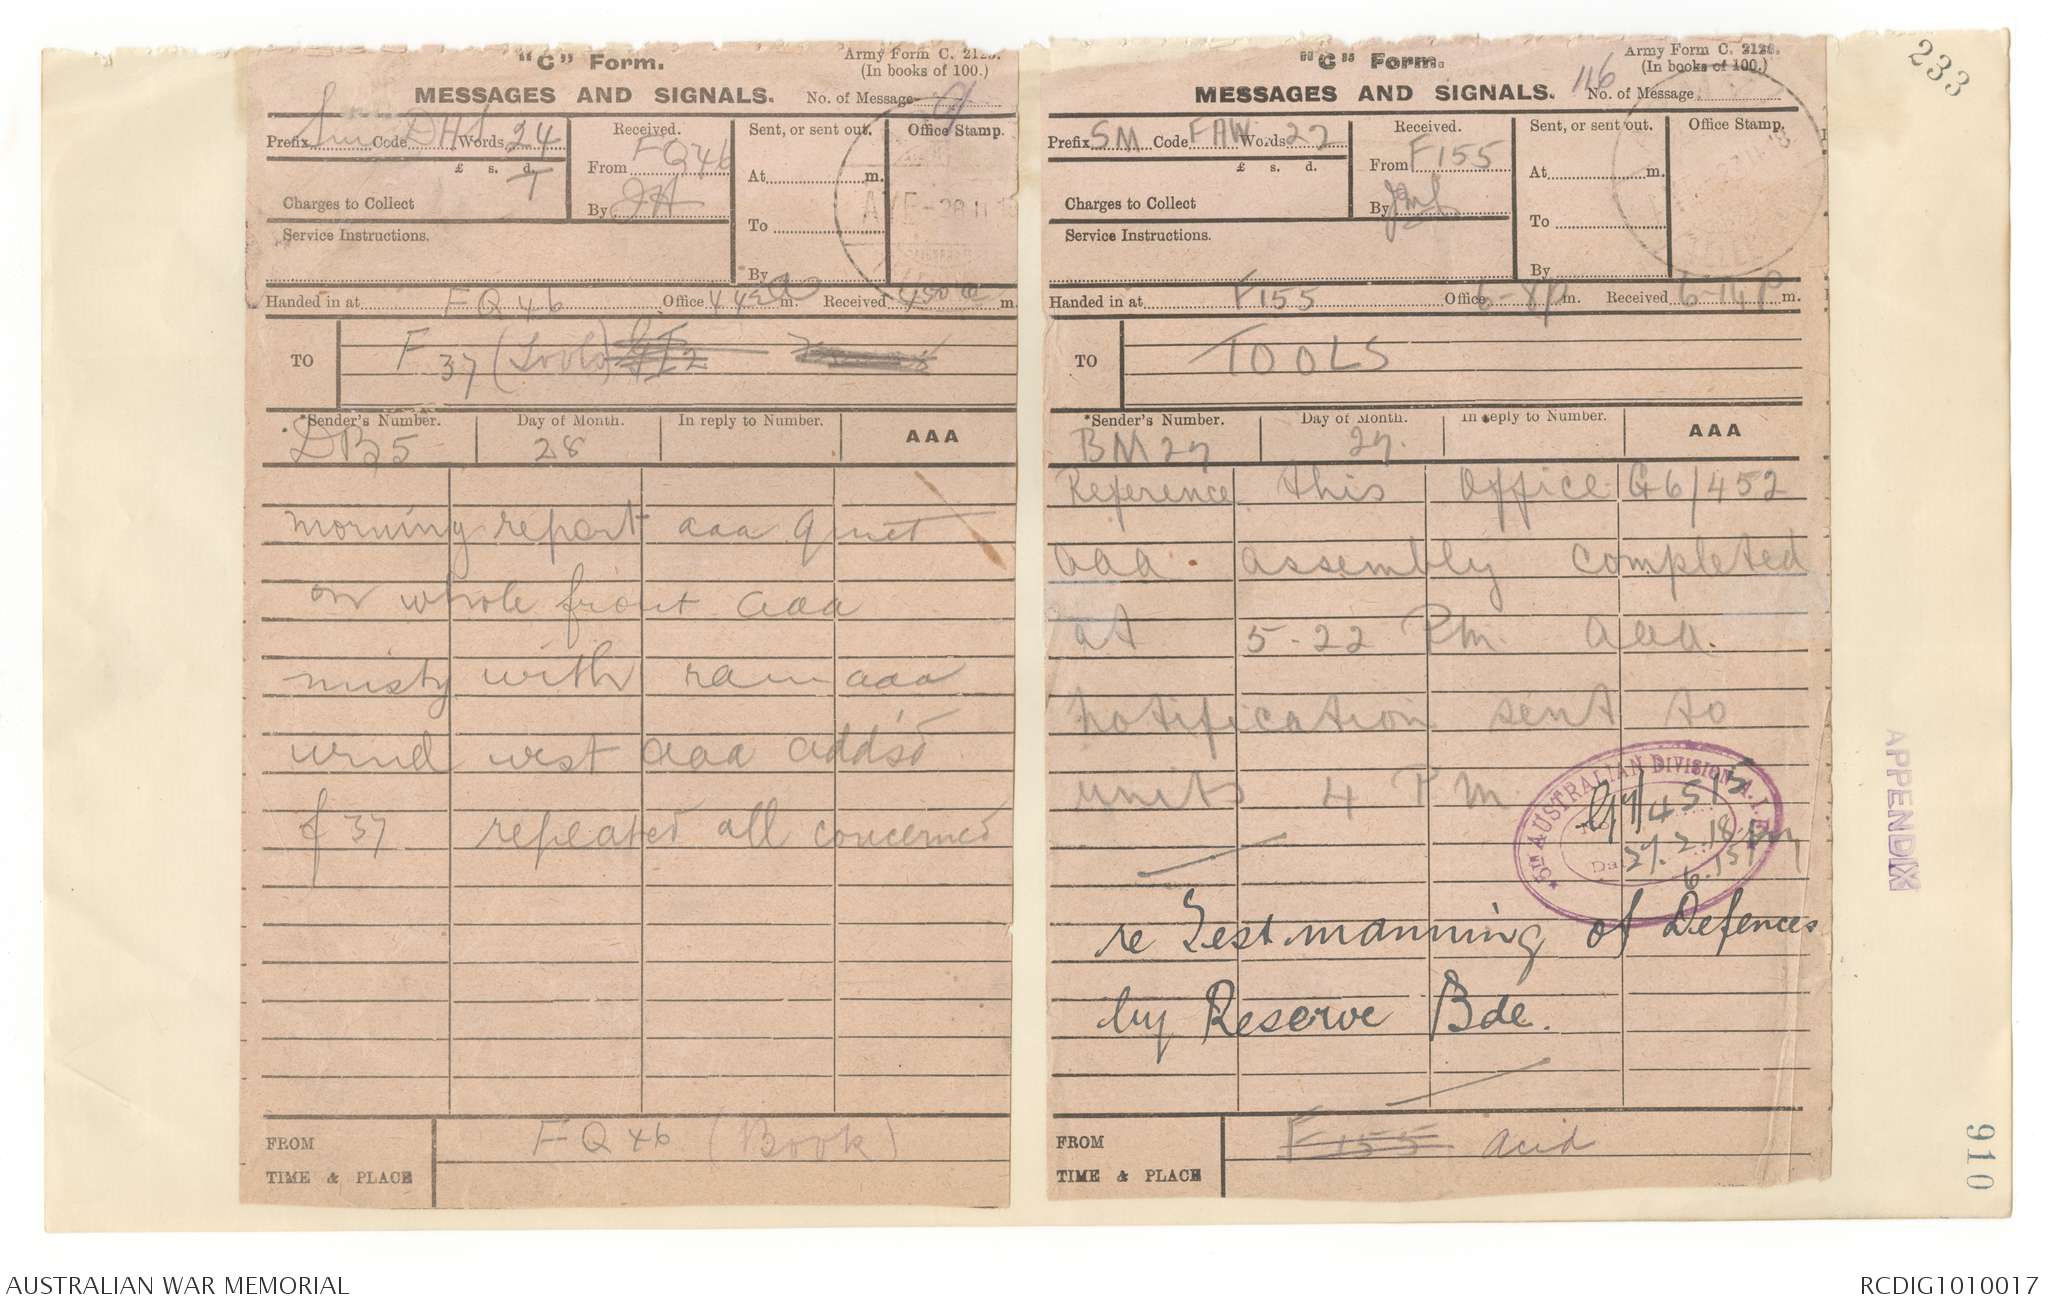 "C" Form.
Army Form C. 2123.
(In books of 100.)
MESSAGES AND SIGNALS.
No. of Message
Prefix Sm Code DHL Words 24
Received.
Sent, or sent out.
Office Stamp.
£ s. d.
From FQ46
At m.
Charges to Collect
By JH
To
Service Instructions.
By
Handed in at FQ46 Office 442 a m. Received 450 a m.
TO F 37 (Tools)
*Sender's Number.
Day of Month.
In reply to Number.
AAA
DB5
28
morning report aaa quiet
on whole front aaa
misty with rain aaa
wind west aaa addsd
f 37 repeated all concerned
FROM FQ46 (Book)
TIME & PLACE
"C" Form.
Army Form C. 2123.
(In books of 100.)
MESSAGES AND SIGNALS.
116 No. of Message
233
Prefix SM Code FAW Words 27
Received.
Sent, or sent out.
Office Stamp.
£ s. d.
From F155
At m.
Charges to Collect
By
To
Service Instructions.
By
Handed in at F155 Office 6-8p m. Received 6-14p m.
TO TOOLS
*Sender's Number.
Day of Month.
In reply to Number.
AAA
BM27
27.
Reference this Office G6/452
aaa assembly completed
at 5-22 Pm. aaa.
notification sent to
units 4 Pm
5TH AUSTRALIAN DIVISION A.I.F.
27.2.18
6.15 pm
re Test manning of Defences
by Reserve Bde.
FROM F155 acid
TIME & PLACE
APPENDIX
910
AUSTRALIAN WAR MEMORIAL
RCDIG1010017